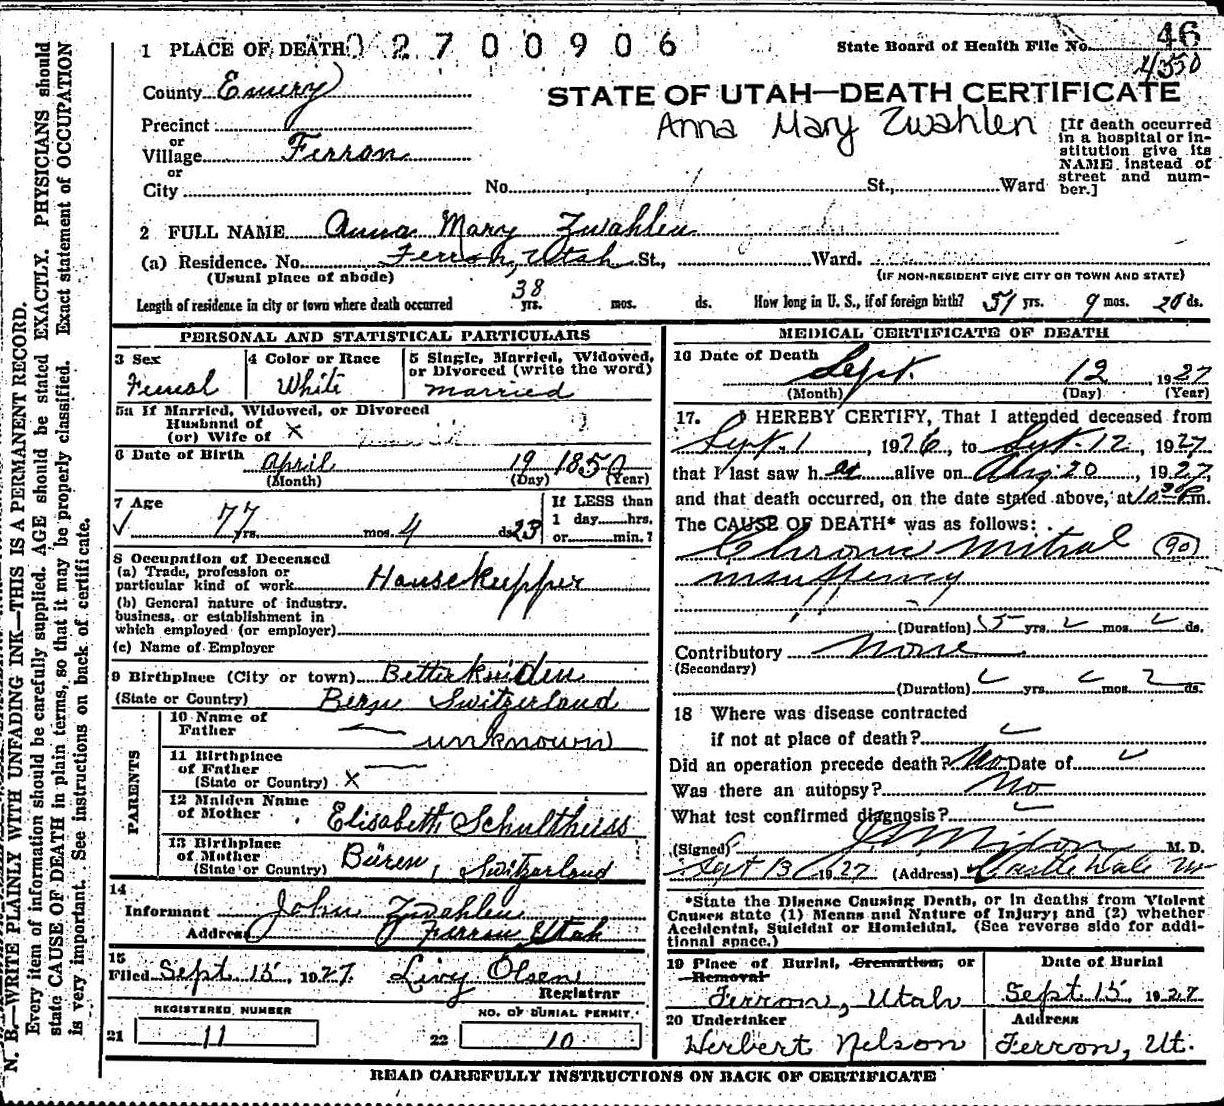 1 PLACE OF DEATH 02700906
State Board of Health File No. 46
4350
County Emery
STATE OF UTAH—DEATH CERTIFICATE
Anna Mary Zwahlen
Precinct
or
Village Ferron
or
City No. St., Ward
[If death occurred in a hospital or institution give its NAME instead of street and number.]
2 FULL NAME Anna Mary Zwahlen
(a) Residence. No. Ferron, Utah St., Ward.
(Usual place of abode) (IF NON-RESIDENT GIVE CITY OR TOWN AND STATE)
Length of residence in city or town where death occurred 38 yrs. mos. ds. How long in U. S., if of foreign birth? 51 yrs. 9 mos. 20 ds.
PERSONAL AND STATISTICAL PARTICULARS
3 Sex Femal
4 Color or Race White
5 Single, Married, Widowed, or Divorced (write the word) married
5a If Married, Widowed, or Divorced
Husband of
(or) Wife of X
6 Date of Birth April 19 1850
(Month) (Day) (Year)
7 Age 77 yrs. mos. 4 ds. 23
If LESS than
1 day hrs.
or min.?
8 Occupation of Deceased
(a) Trade, profession or
particular kind of work Housekeepper
(b) General nature of industry.
business, or establishment in
which employed (or employer)
(c) Name of Employer
9 Birthplace (City or town)
(State or Country) Bern Switzerland
PARENTS
10 Name of
Father unknown
11 Birthplace
of Father
(State or Country) X
12 Maiden Name
of Mother Elisabeth Schultheiss
13 Birthplace
of Mother
(State or Country) Büren, Switzerland
14
Informant John Zwahlen
Address Ferron Utah
15
Filed Sept 15, 1927 Livy Olsen
Registrar
REGISTERED NUMBER
21 11
NO. OF BURIAL PERMIT.
22 10
MEDICAL CERTIFICATE OF DEATH
16 Date of Death
Sept. 12, 1927
(Month) (Day) (Year)
17. I HEREBY CERTIFY, That I attended deceased from
Sept. 1, 1926, to Sept. 12, 1927
that I last saw h er alive on Aug. 20, 1927,
and that death occurred, on the date stated above, at 10 30 P m.
The CAUSE OF DEATH* was as follows:
Chronic mitral (90)
insuffiency
(Duration) 5 yrs. mos. ds.
Contributory None
(Secondary)
(Duration) yrs. mos. ds.
18 Where was disease contracted
if not at place of death?
Did an operation precede death? No Date of
Was there an autopsy? No
What test confirmed diagnosis?
(Signed) M. D.
Sept 13 1927 (Address) Castle Dale
*State the Disease Causing Death, or in deaths from Violent
Causes state (1) Means and Nature of Injury; and (2) whether
Accidental, Suicidal or Homicidal. (See reverse side for additional space.)
19 Place of Burial, Cremation, or
Removal
Ferron, Utah
Date of Burial
Sept 15, 1927
20 Undertaker
Herbert Nelson
Address
Ferron, Ut.
READ CAREFULLY INSTRUCTIONS ON BACK OF CERTIFICATE
N. B.—WRITE PLAINLY WITH UNFADING INK—THIS IS A PERMANENT RECORD.
Every item of information should be carefully supplied. AGE should be stated EXACTLY. PHYSICIANS should
state CAUSE OF DEATH in plain terms, so that it may be properly classified. Exact statement of OCCUPATION
is very important. See instructions on back of certificate.